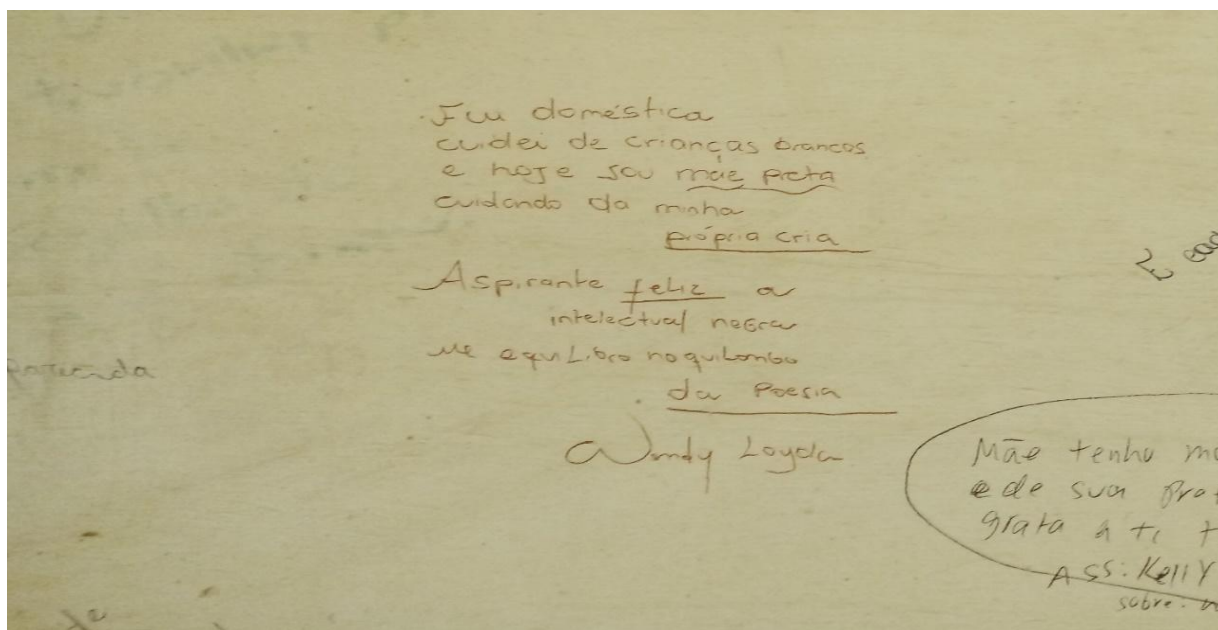 Fui doméstica
cuidei de crianças brancas
e hoje sou mãe preta
cuidando da minha
própria cria
Aspirante feliz a
intelectual negra
me equilibro no quilombo
da Poesia
Loyola
Mãe tenho
e de sua
grata a ti
ASS: Kelly
sobre: